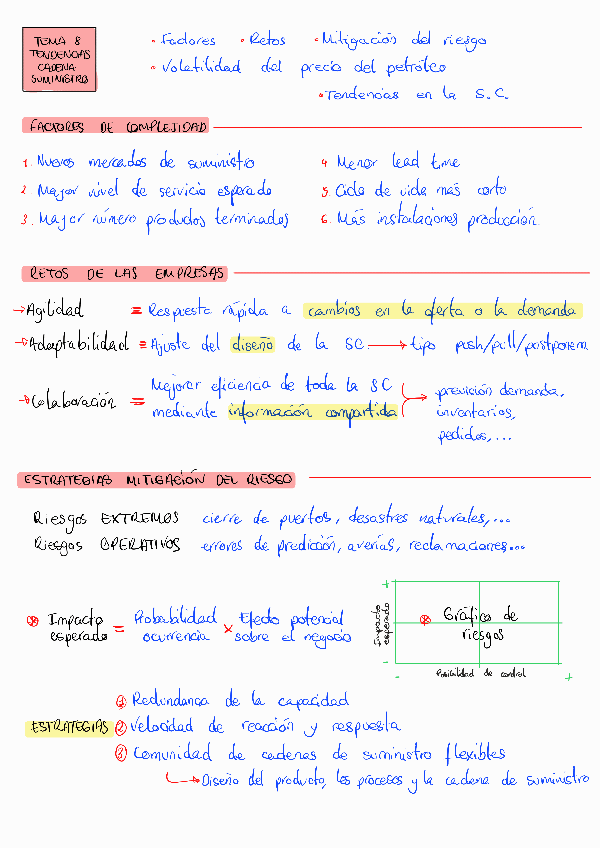 TEMA 8
TENDENCIAS
CADENA
SUMINISTRO
• Factores • Retos • Mitigación del riesgo
• Volatilidad del precio del petróleo
• Tendencias en la S.C.
FACTORES DE COMPLEJIDAD
1. Nuevos mercados de suministro
2. Mayor nivel de servicio esperado
3. Mayor número productos terminados
4. Menor lead time
5. Ciclo de vida más corto
6. Más instalaciones producción
RETOS DE LAS EMPRESAS
→ Agilidad = Respuesta rápida a cambios en la oferta o la demanda
→ Adaptabilidad = Ajuste del diseño de la SC → tipo push/pull/postponem
→ Colaboración = Mejorar eficiencia de toda la SC
mediante información compartida → previsión demanda,
inventarios,
pedidos,...
ESTRATEGIAS MITIGACIÓN DEL RIESGO
Riesgos EXTREMOS cierre de puertos, desastres naturales,...
Riesgos OPERATIVOS errores de predicción, averías, reclamaciones...
* Impacto esperado = Probabilidad ocurrencia x Efecto potencial sobre el negocio
+
Impacto esperado
-
* Gráfico de
riesgos
- Posibilidad de control +
ESTRATEGIAS
1 Redundanca de la capacidad
2 Velocidad de reacción y respuesta
3 Comunidad de cadenas de suministro flexibles
→ Diseño del producto, los procesos y la cadena de suministro